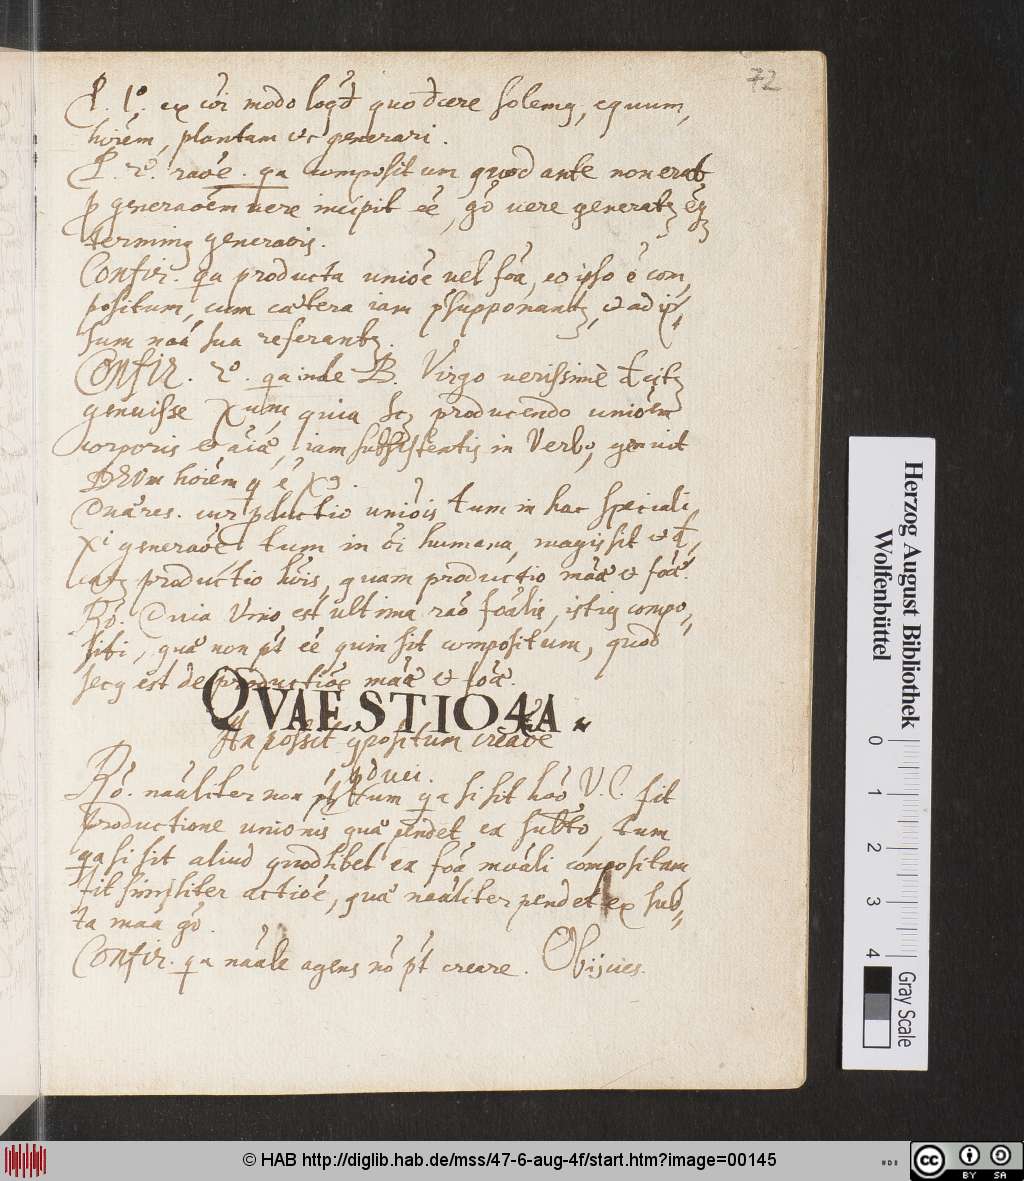 72
P. 1º. ex cõi modo loqd quo dcere solemq, equum,
hoiem, plantam etc generari.
P. 2º. raõe. qa compositum quod ante non erat
p generaõem vere incipit eẽ, gº vere generatz
terminq generaõis.
Confir. qa producta unioẽ vel foa, eo ipso ẽ com,
positum, cum cætera iam psupponantz, et ad ip,
sum noa sua referantz.
Confir. 2º. qa inde B. Virgo verissime dcitz
genuisse Xum, quia scz producendo unioẽm
corporis et aiæ, iam subsistentis in Verbo, genuit
DEVm hoiem q ẽ Xq.
Quæres. cur pductio uniois tum in hac speciali
Xi generaoẽ tum in oi humana, magis sit et d,
catz productio hois, quam productio maæ et foæ.
Rº. Quia Unio est ultima raõ foalis, istiq compo„
siti, quæ non pt eẽ quin sit compositum, quod
secq est de productioẽ maæ et foæ.
QVAESTIO 4A.
An possit positum creaõe
pduci.
Rº. naaliter non qa si sit haõ V.C. fit
productione unionis quæ pendet ex subto, tum
qa si sit aliud quodlibet ex foa maali compositum
fit similiter actioẽ, quæ naaliter pendet ex sub„
ta maa gº.
Confir. qa naale agens nõ pt creare. Obijcies.
Herzog August Bibliothek
Wolfenbüttel
0 1 2 3 4
Gray Scale
© HAB http://diglib.hab.de/mss/47-6-aug-4f/start.htm?image=00145
cc BY SA